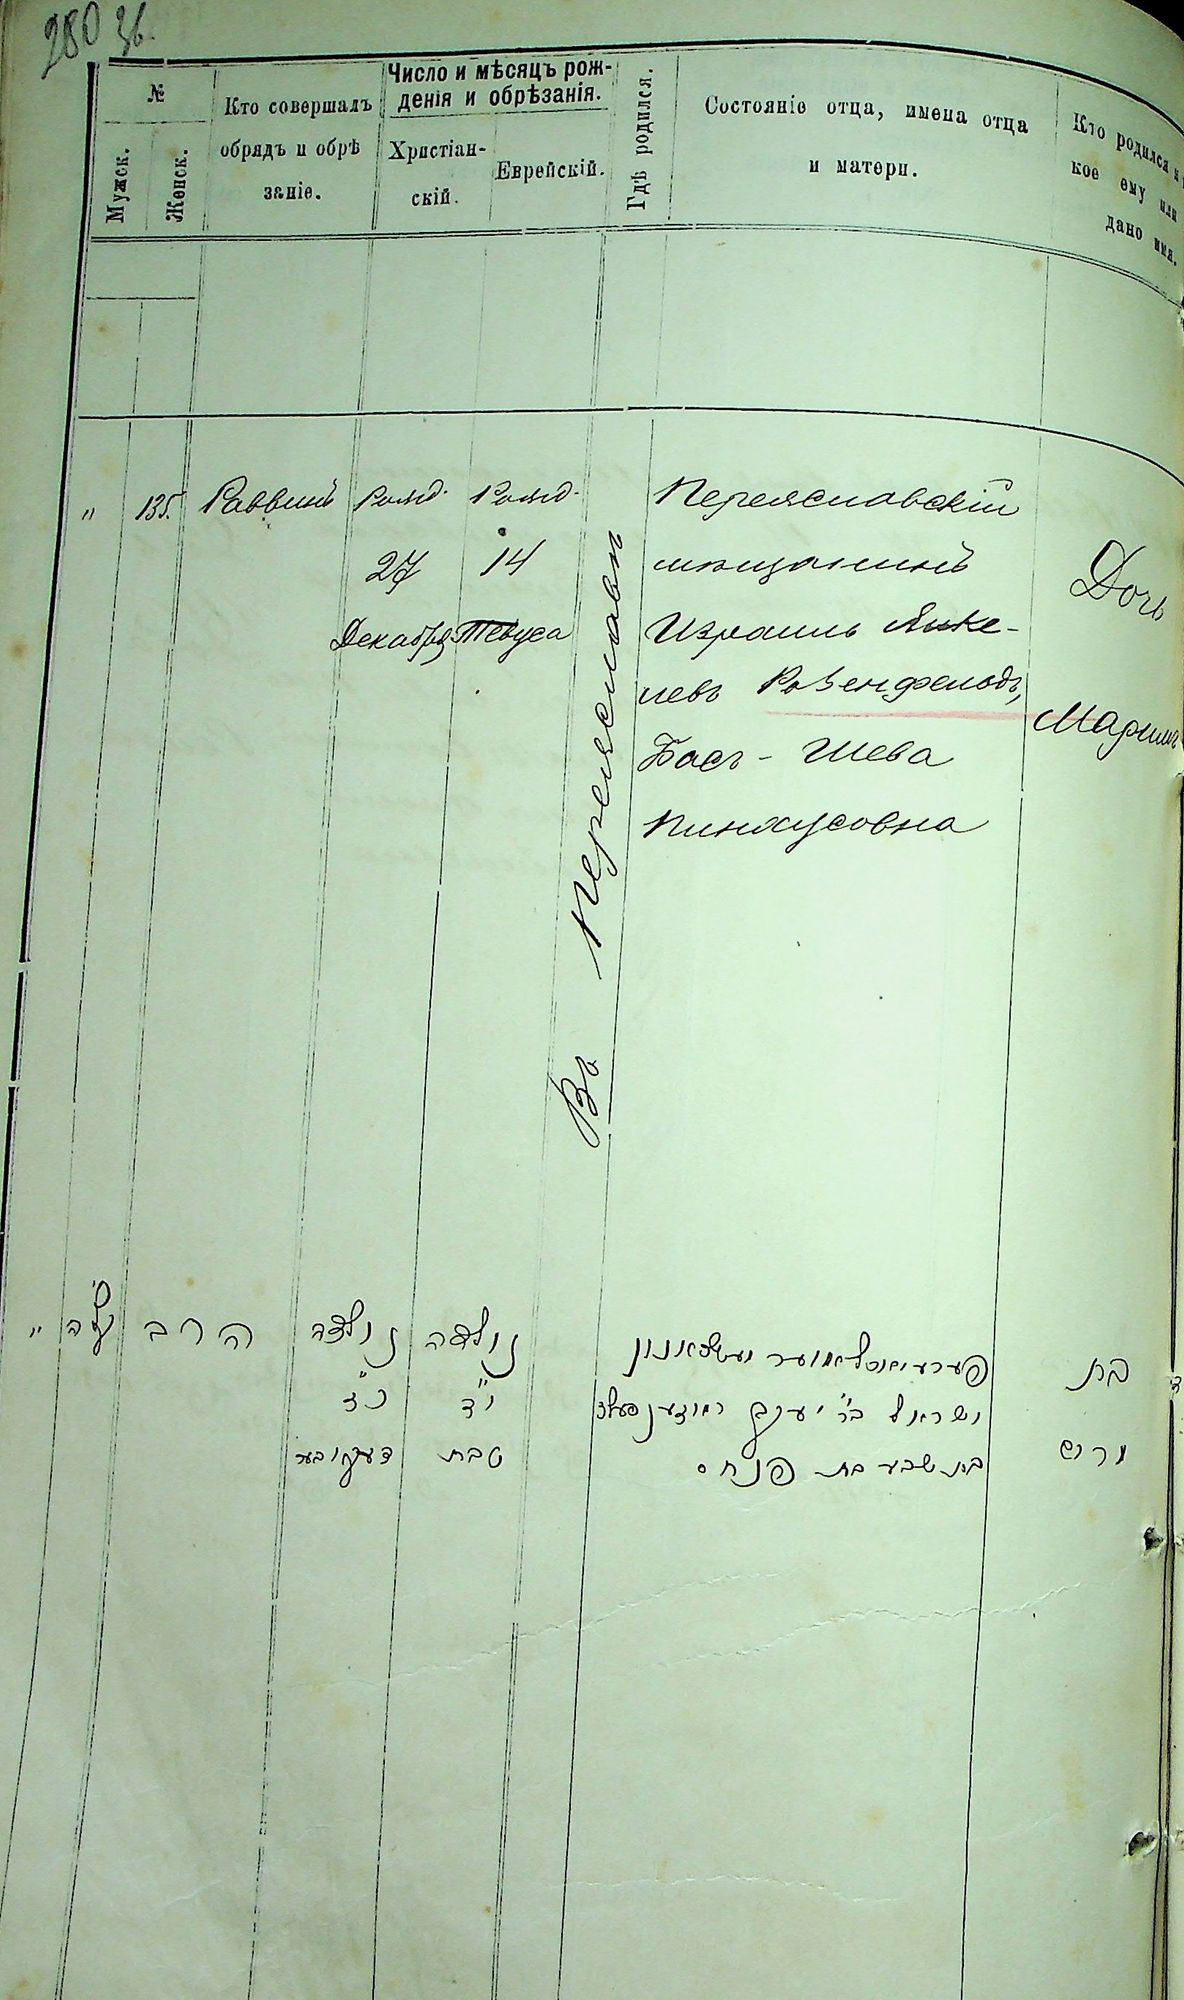 280 зв.
№
Мужск.
Женск.
Кто совершалъ
обрядъ и обрѣ
заніе.
Число и мѣсяцъ рож-
денія и обрѣзанія.
Христіан-
скій.
Еврейскій.
Гдѣ родился.
Состояніе отца, имена отца
и матери.
Кто родился и
кое ему или
дано имя.
" 135. Раввинъ
Рожд.
27
Декабря
Рожд.
14
Тевуса
Въ Переяславѣ
Переяславскій
мѣщанинъ
Израиль Янке-
левъ Розенфельдъ,
Бася-Шева
Пинхусовна
Дочь
Марьимъ
"
הרב
נולדה
כ"ז
דעקאבער
נולדה
י"ד
טבת
פערעיאסלאווער
ישראל בר' יעקב ראזענפעלד
בת שבע בת פנחס
בת